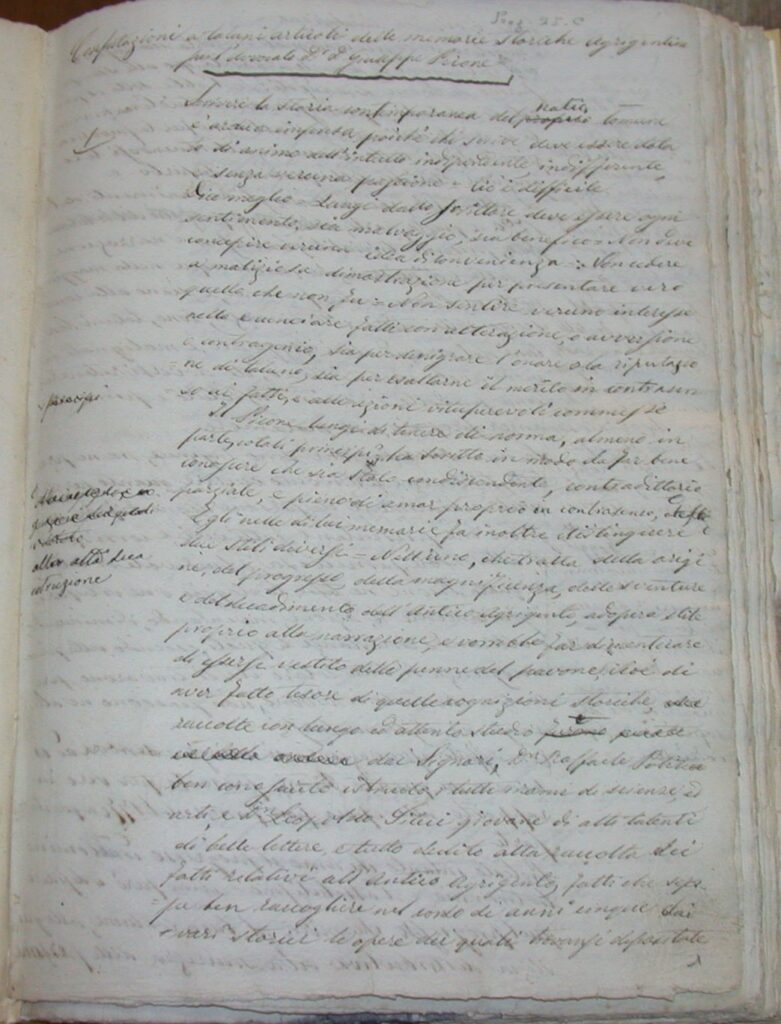 Prog. 25. C
Confutazioni a taluni articoli delle memorie Storiche Agrigentine
per l'avvocato Dr. D. Giuseppe Picone
1
Scrivere la storia contemporanea del proprio natio comune
è ardua impresa poiché chi scrive deve essere dota
to di animo dell'intutto indipendente, indifferente
senza veruna passione = Ciò è difficile
Dico meglio = Lungi dallo Scrittore deve essere ogni
sentimento, sia malvaggio, sia benefico = Non deve
concepire veruna idea di convenienza = Non cedere
a maliziosa dimostrazione per presentare vero
quello che non fu = Non sentire veruno interesse
nello enunciare fatti con alterazione, o avversione
o contragenio, sia per denigrare l'onore o la riputazio
ne di taluno, sia per esaltarne il merito in contrasen
so ai fatti, e alle azioni vituperevoli commesse
Il Picone lungi di tenere di norma, almeno in
parte, cotali principî, ha scritto in modo da far bene
conoscere che sia stato condiscendente, contradittorio
parziale, e pieno di amor proprio in contrasenso
Egli nelle di lui memorie fa inoltre distinguere
due stili diversi = Nell'uno, che tratta della origi
ne, del progresso, della magnificenza, delle sventure
e del decadimento dell'Antico Agrigento, adopera stile
proprio alla narrazione, e vorrebbe far dimenticare
di essersi vestito delle penne del pavone, cioè di
aver fatto tesoro di quelle cognizioni storiche,
raccolte con lungo ed attento studio
dai Signori, Dn Raffaele Politi
ben conosciuto istruito i tutti rami di scienze, ed
arti, e Dn Leopoldo Pitii giovane di alti talenti
di belle lettere, e tutto dedito alla raccolta dei
fatti relativi all'Antico Agrigento, fatti che sep
pe ben raccogliere nel corso di anni cinque dai
vari storici le opere dei quali trovansi depositate
alla